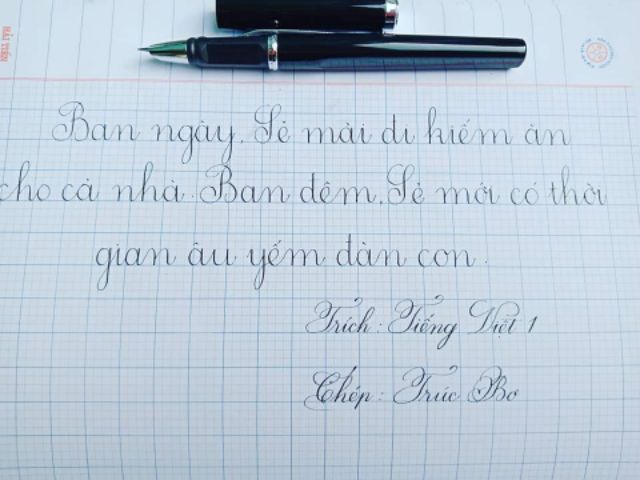 Ban ngày, Sẻ mải đi kiếm ăn
cho cả nhà. Ban đêm, Sẻ mới có thời
gian âu yếm đàn con.
Trích: Tiếng Việt 1
Chép: Trúc Bơ
HẢI TIẾN